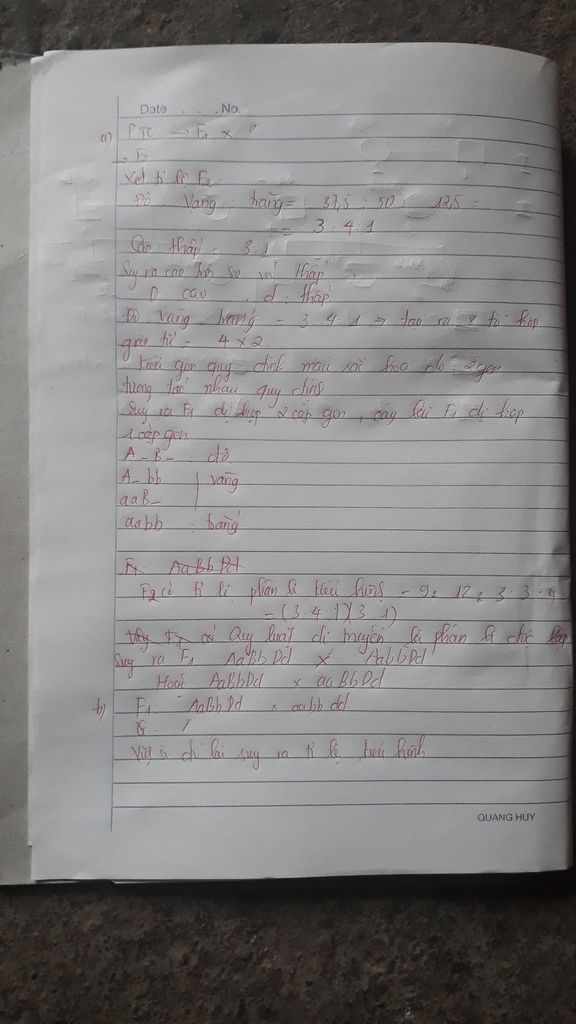 Date . . . No.
a) PTC → F₁ ×
→ F
Xét tỉ lệ F₂
Đỏ : Vàng : trắng = 37,5 : 50 : 12,5 =
= 3 : 4 : 1
Cao : thấp = 3 : 1
Suy ra cao trội so với thấp
D : cao d : thấp
Đỏ : vàng : trắng = 3 : 4 : 1 ⇒ tạo ra 8 tổ hợp
giao tử = 4 × 2
gen quy định màu sắc hoa do 2 gen
tương tác nhau quy định
Suy ra F₁ dị hợp 2 cặp gen, cây lai F₁ dị hợp
1 cặp gen
A_B_ : đỏ
A_bb | vàng
aaB_
aabb : trắng
F₁ AaBbDd
F₂ có tỉ lệ phân li kiểu hình = 9 : 12 : 3 : 3 : 4
= (3 : 4 : 1)(3 : 1)
Quy luật di truyền là phân li độc lập
Suy ra F₁ AaBbDd × AabbDd
Hoặc AaBbDd × aaBbDd
b) F₁ : AaBbDd × aabbdd
G : /
Viết sơ đồ lai suy ra tỉ lệ kiểu hình
QUANG HUY